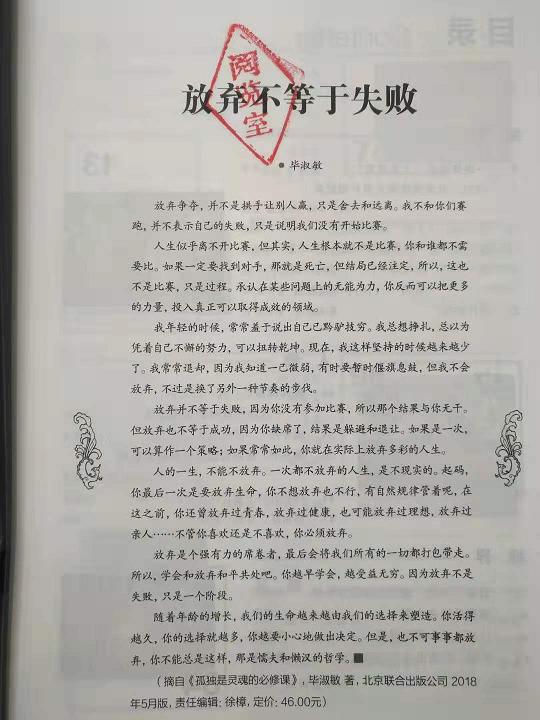 阅览室
放弃不等于失败
● 毕淑敏
放弃争夺，并不是拱手让别人赢，只是舍去和远离。我不和你们赛
跑，并不表示自己的失败，只是说明我们没有开始比赛。
人生似乎离不开比赛，但其实，人生根本就不是比赛，你和谁都不需
要比。如果一定要找到对手，那就是死亡，但结局已经注定，所以，这也
不是比赛，只是过程。承认在某些问题上的无能为力，你反而可以把更多
的力量，投入真正可以取得成效的领域。
我年轻的时候，常常羞于说出自己已黔驴技穷。我总想挣扎，总以为
凭着自己不懈的努力，可以扭转乾坤。现在，我这样坚持的时候越来越少
了。我常常退却，因为我知道一己微弱，有时要暂时偃旗息鼓，但我不会
放弃，不过是换了另外一种节奏的步伐。
放弃并不等于失败，因为你没有参加比赛，所以那个结果与你无干。
但放弃也不等于成功，因为你缺席了，结果是躲避和退让。如果是一次，
可以算作一个策略；如果常常如此，你就在实际上放弃多彩的人生。
人的一生，不能不放弃。一次都不放弃的人生，是不现实的。起码，
你最后一次是要放弃生命，你不想放弃也不行，有自然规律管着呢，在
这之前，你还曾放弃过青春，放弃过健康，也可能放弃过理想，放弃过
亲人……不管你喜欢还是不喜欢，你必须放弃。
放弃是个强有力的席卷者，最后会将我们所有的一切都打包带走。
所以，学会和放弃和平共处吧。你越早学会，越受益无穷。因为放弃不是
失败，只是一个阶段。
随着年龄的增长，我们的生命越来越由我们的选择来塑造。你活得
越久，你的选择就越多，你越要小心地做出决定。但是，也不可事事都放
弃，你不能总是这样，那是懦夫和懒汉的哲学。■
（摘自《孤独是灵魂的必修课》，毕淑敏 著，北京联合出版公司 2018
年5月版，责任编辑：徐樟，定价：46.00元）